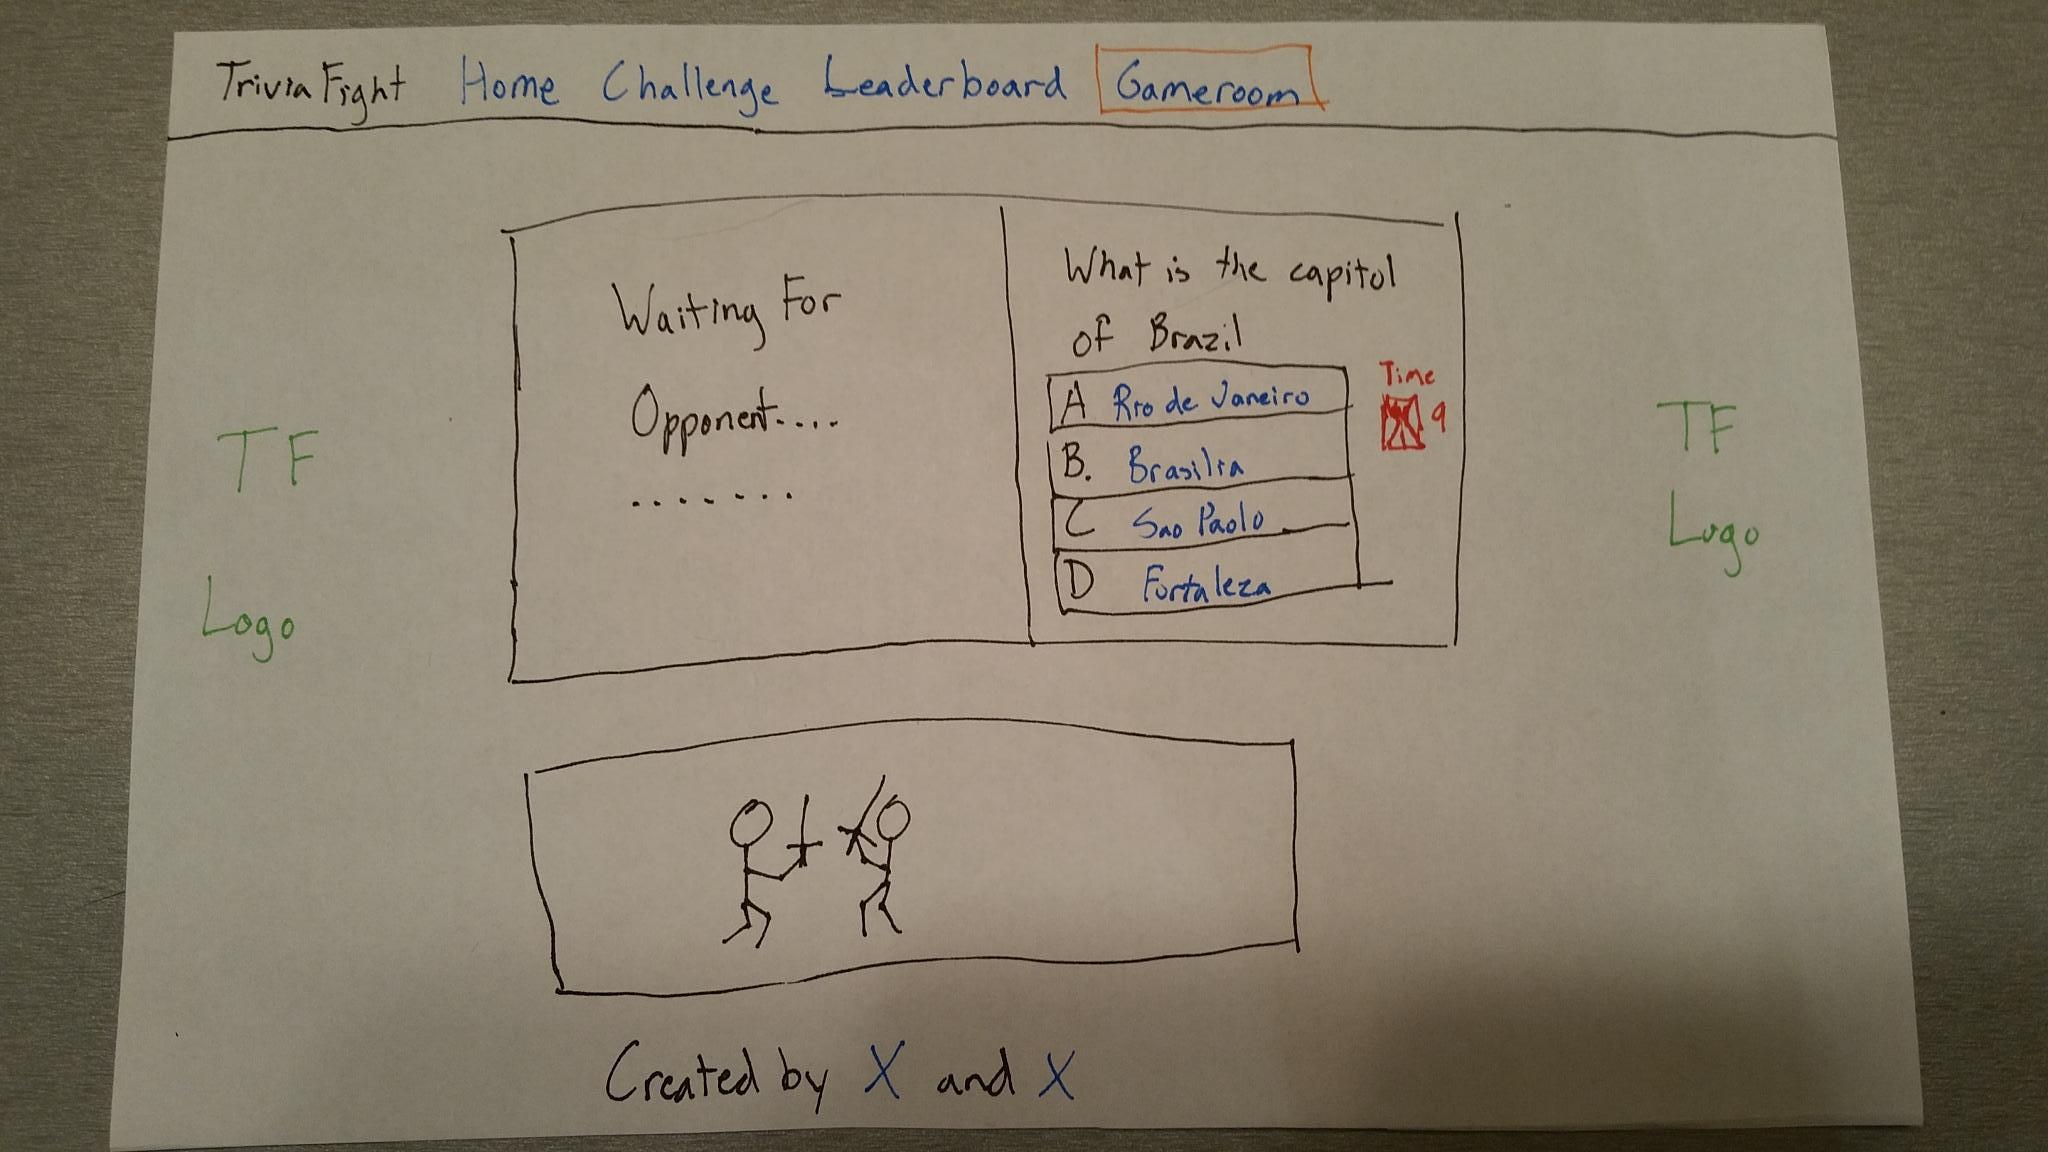 Trivia Fight Home Challenge Leaderboard Gameroom
Waiting For
Opponent....
.......
What is the capitol
of Brazil
A Rio de Janeiro
B. Brasilia
C Sao Paolo
D Fortaleza
Time
9
TF
Logo
TF
Logo
Created by X and X